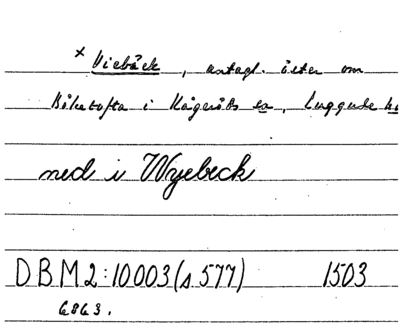 × Viebäck, antagl. öster om
Böketofta i Kågeröds sn, Luggude h
ned i Wyebeck
DBM2:10003(s 577) 1503
6863.